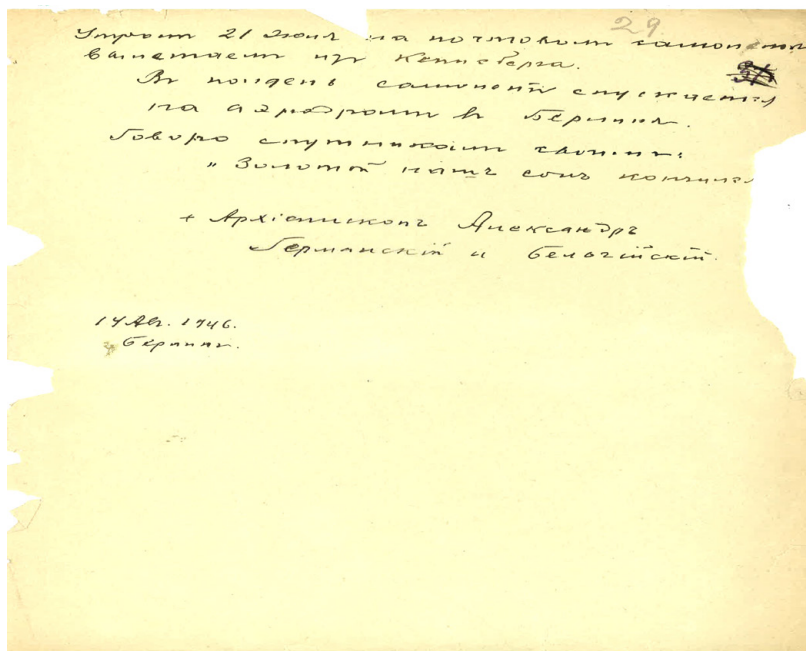 29
Утром 21 июля на почтовом самолете
вылетаем из Кенигсберга.
В полдень самолет спускается
на аэродром в Берлин.
Говорю спутникам своим:
„Золотой нашъ сонъ кончился
+ Архіепископъ Александръ
Германскій и Бельгійскій.
14 Ав. 1946.
Берлин.